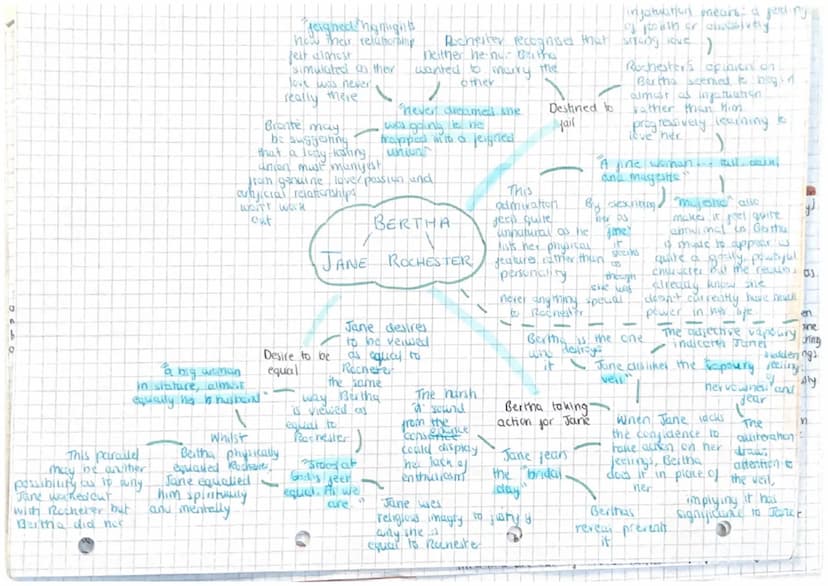 "feigned" highlights
how their relationship
felt almost
simulated as their
love was never
really there
Rochester recognises that
neither he nor Bertha
wanted to marry the
other
infatuation means: a feeling
of foolish or obsessively
strong love
Rochester's opinion on
Bertha seemed to begin
almost as infatuation
rather than him
progressively learning to
love her
Destined to
fail
"never dreamed she
was going to be
trapped into a feigned
union"
Brontë may
be suggesting
that a long-lasting
union must manifest
from genuine love/passion and
artificial relationships
won't work
out
"A fine woman... tall, dark,
and majestic"
This
admiration
feels quite
unnatural as he
lists her physical
features rather than
personality
By describing
her as
"fine"
it
seems
as
though
she was
never anything special
to Rochester
"majestic" also
makes it feel quite
abnormal as Bertha
is made to appear as
quite a godly, powerful
character but the readers
already know she
doesn't currently have much
power in his life
BERTHA
JANE ROCHESTER
Desire to be
equal
Jane desires
to be viewed
as equal to
Rochester
the same
way Bertha
is viewed as
equal to
Rochester
"a big woman
in stature, almost
equalling her husband"
Whilst
Bertha physically
equalled Rochester,
Jane equalled
him spiritually
and mentally
This parallel
may be another
possibility as to why
Jane worked out
with Rochester but
Bertha did not
"stood at
God's feet
equal. As we
are"
Jane uses
religious imagery to justify
why she is
equal to Rochester
Bertha taking
action for Jane
Bertha is the one
who destroys
it
Jane dislikes the "vapoury
veil"
The adjective vapoury
indicates Jane's
sudden
feeling
nervewness and
fear
The
alliteration
draws
attention to
the veil,
implying it has
significance to Jane
When Jane lacks
the confidence to
take action on her
feelings, Bertha
does it in place of
her
Jane fears
the "bridal
day"
The harsh
'd' sound
from the
consonance
could display
her lack of
enthusiasm
Bertha's
reveal prevents
it